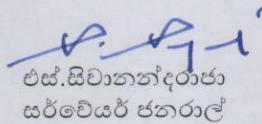 එස්.සිවානන්දරාජා
සර්වේයර් ජනරාල්